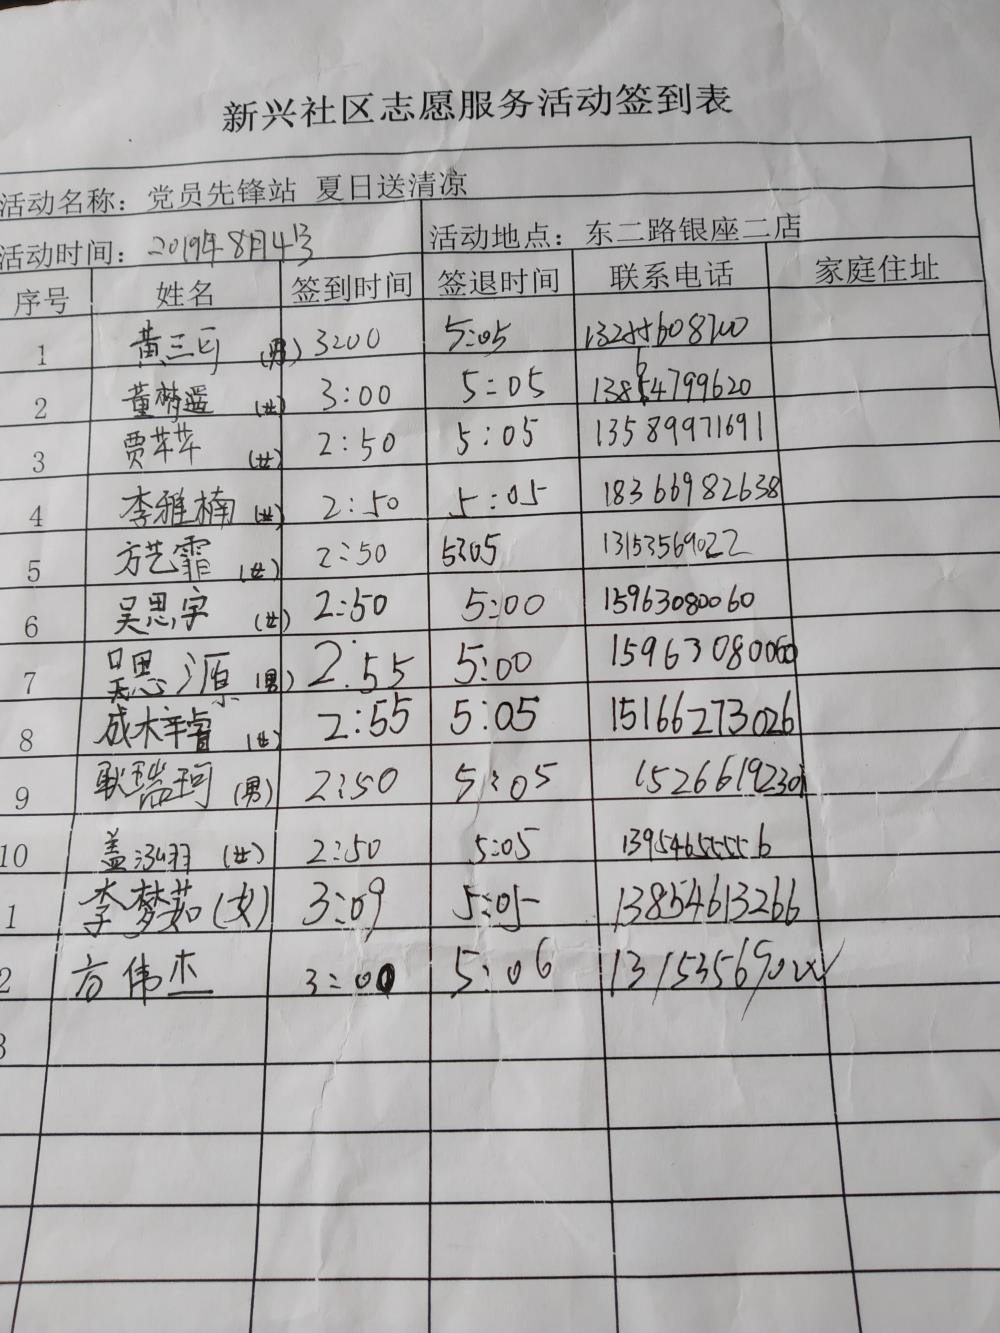 新兴社区志愿服务活动签到表
活动名称：党员先锋站 夏日送清凉
活动时间：2019年8月4号 活动地点：东二路银座二店
序号 姓名 签到时间 签退时间 联系电话 家庭住址
1 黄三可 (男) 3:00 5:05
2 董梦遥 (女) 3:00 5:05 13854799620
3 贾苹苹 (女) 2:50 5:05 13589971691
4 李雅楠 (女) 2:50 5:05 18366982638
5 方艺霏 (女) 2:50 5:05 13153569022
6 吴思宇 (女) 2:50 5:00 15963080060
7 吴思源 (男) 2:55 5:00 15963080060
8 成木辛睿 (女) 2:55 5:05 15166273026
9 耿瑞珂 (男) 2:50 5:05
10 盖泓羽 (女) 2:50 5:05 13954655556
1 李梦茹 (女) 3:09 5:05 13854613266
2 方伟杰 3:00 5:06
3